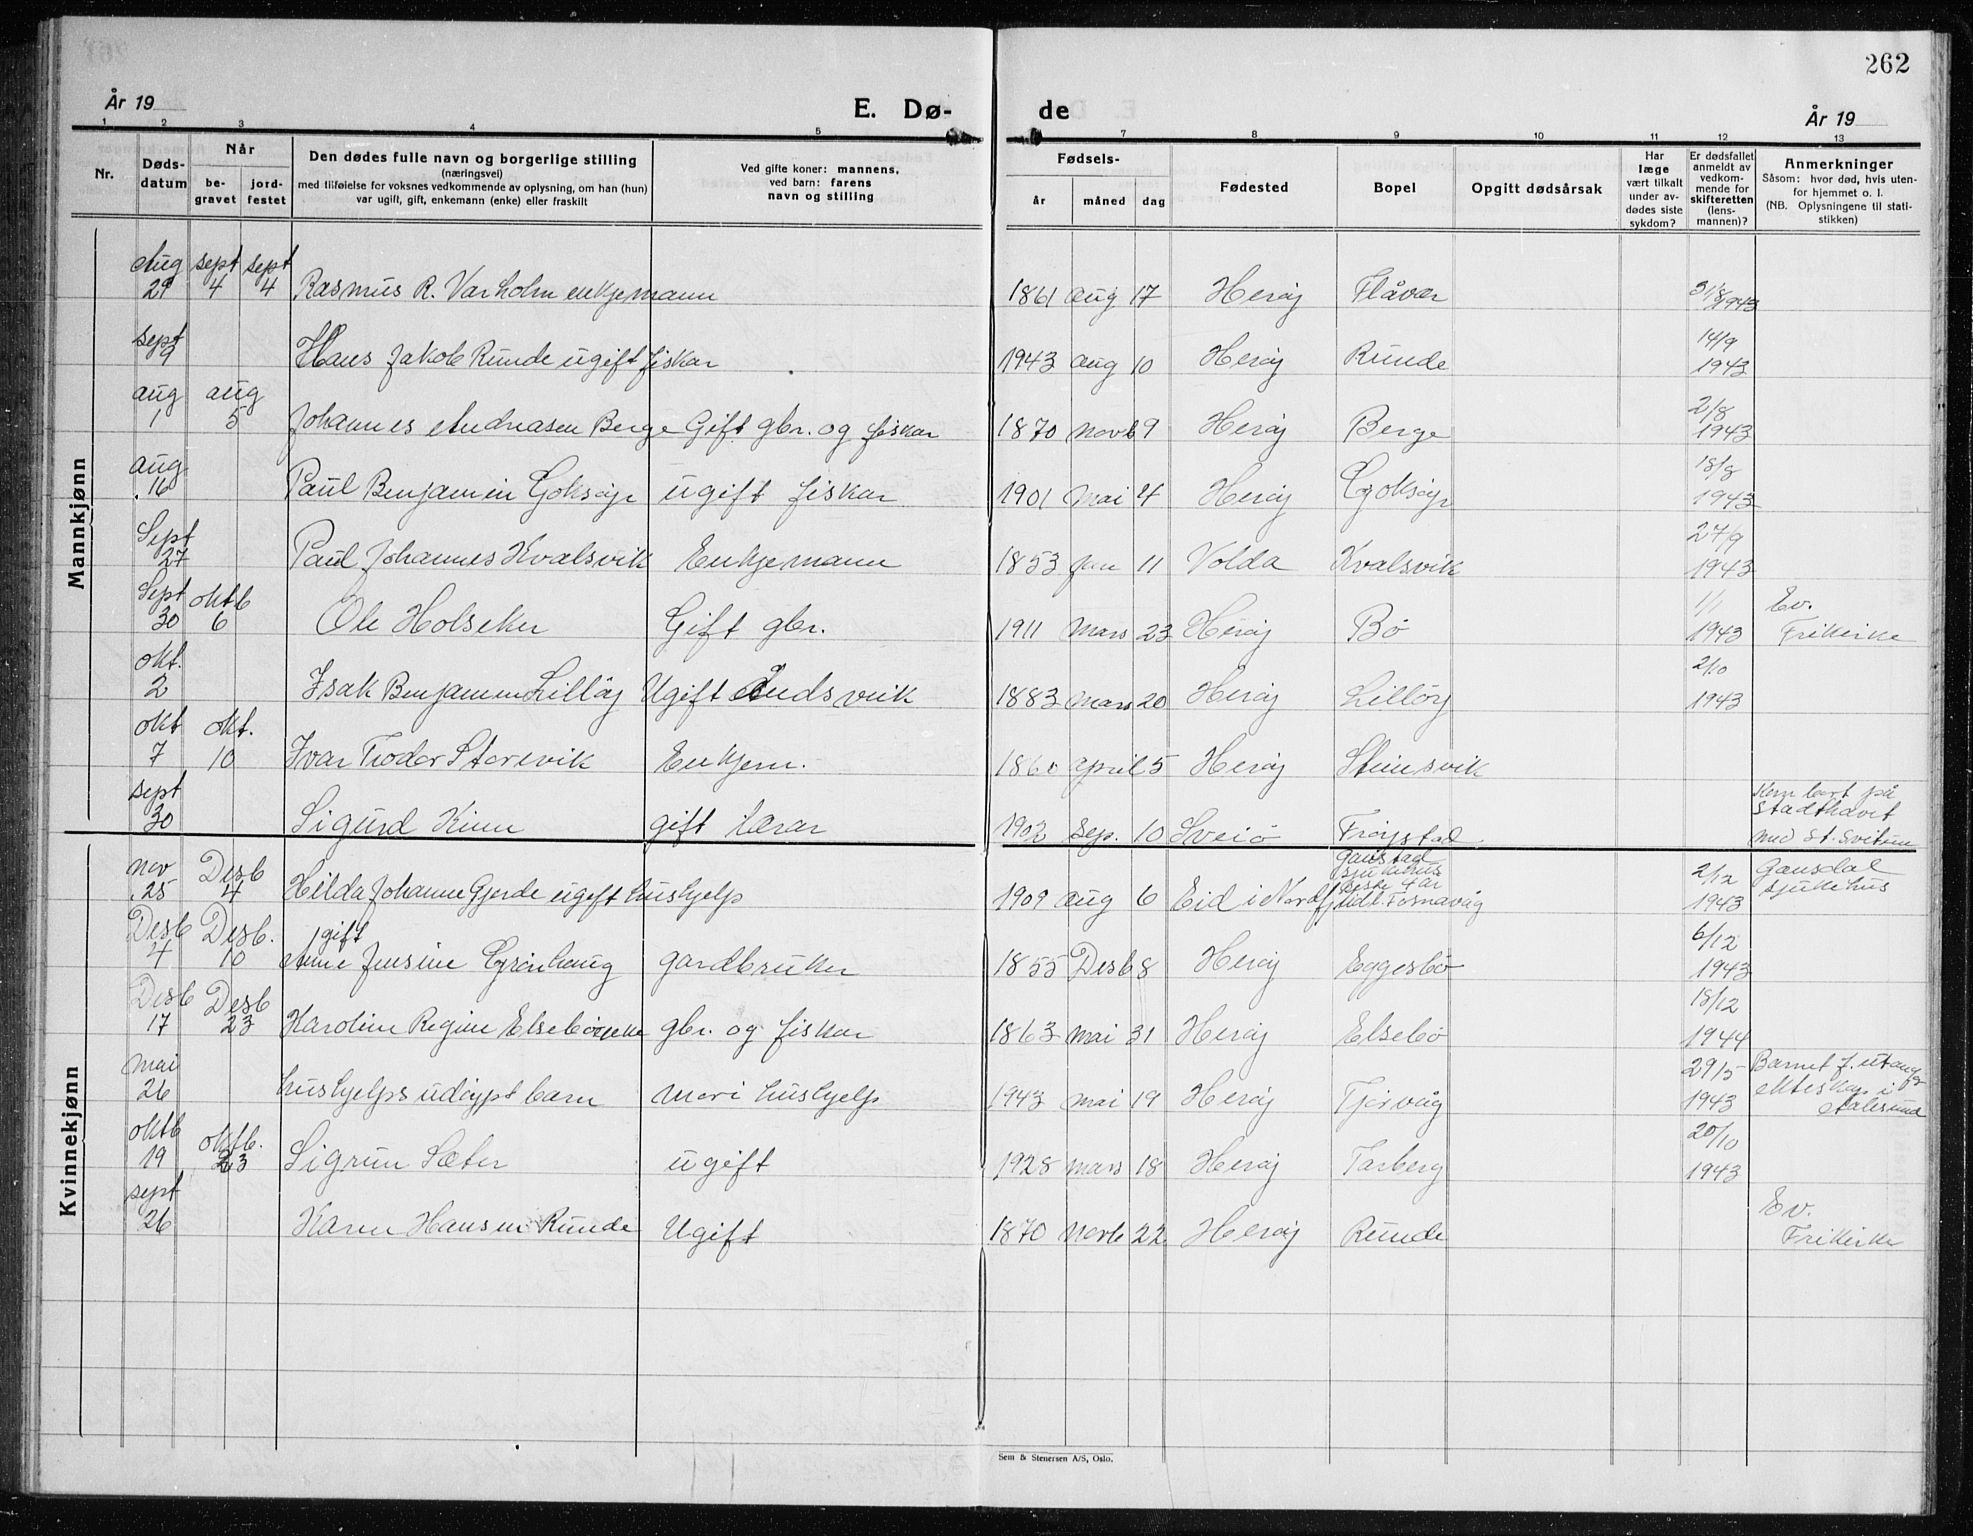 262
År 19
E. Dø-
de
År 19
1 2 3 4 5 7 8 9 10 11 12 13
Nr.
Døds-
datum
Når
be-
gravet
jord-
festet
Den dødes fulle navn og borgerlige stilling
(næringsvei)
med tilføielse for voksnes vedkommende av oplysning, om han (hun)
var ugift, gift, enkemann (enke) eller fraskilt
Ved gifte koner: mannens,
ved barn: farens
navn og stilling
Fødsels-
år måned dag
Fødested
Bopel
Opgitt dødsårsak
Har
læge
vært tilkalt
under av-
dødes siste
sykdom?
Er dødsfallet
anmeldt av
vedkom-
mende for
skifteretten
(lens-
mannen)?
Anmerkninger
Såsom: hvor død, hvis uten-
for hjemmet o. l.
(NB. Oplysningene til stati-
stikken)
Mannkjønn
Aug sept sept
29 4 4 Rasmus R. Varholm enkjemann 1861 aug 17 Herøy Flåvær 31/8 1943
sept 14/9
9 Hans Jakob Runde ugift fiskar 1943 aug 10 Herøy Runde 1943
aug aug 2/8
1 5 Johannes Andreasen Berge Gift gbr. og fiskar 1870 novb 9 Herøy Berge 1943
aug 18/8
16 Paul Benjamin Goksøyr ugift fiskar 1901 Mai 4 Herøy Goksøyr 1943
Sept 27/9
27 Paul Johannes Kvalsvik Enkjemann 1853 jan 11 Volda Kvalsvik 1943
Sept oktb 1/1 Ev.
30 6 Ole Holseker Gift gbr. 1911 Mars 23 Herøy Bø 1943 Frikirke
okt. 2/10
2 Isak Benjamin Lilløy Ugift Åndsveik 1883 Mars 20 Herøy Lilløy 1943
okt okt.
7 10 Ivar Teodor Storevik Enkjem. 1860 april 5 Herøy Steinsvik
sept Kom bort på
stadthavet
30 Sigurd Kinn gift lærar 1902 Sep. 10 Sveiø Frøystad med st. Svitun
Kvinnekjønn
nov Desb Gaustad
sjukehus
siste 4 år 2/12 Gausdal
25 4 Hilda Johanne Gjerde ugift hushjelp 1909 aug 6 Eid i Nordfj. Fosnavåg 1943 sjukehus
Desb Desb. gift 6/12
4 10 Anne Jensine Grønhaug gardbruker 1855 Desb 8 Herøy Eggesbø 1943
Desb Desb 18/12
17 23 Karoline Regine Elsebø enke gbr. og fiskar 1863 mai 31 Herøy Elsebø 1944
mai 29/5 Barnet f. utanfor
26 hushjelps udøypt barn mori hushjelp 1943 mai 19 Herøy Tjørvåg 1943 ekteskap i
Ålesund
oktb oktb. 20/10
19 23 Sigrun Sæter ugift 1928 mars 18 Herøy Tarberg 1943
sept Ev.
26 Karen Hansen Runde Ugift 1870 Novb 22 Herøy Runde Frikirke
Sem & Stenersen A/S, Oslo.